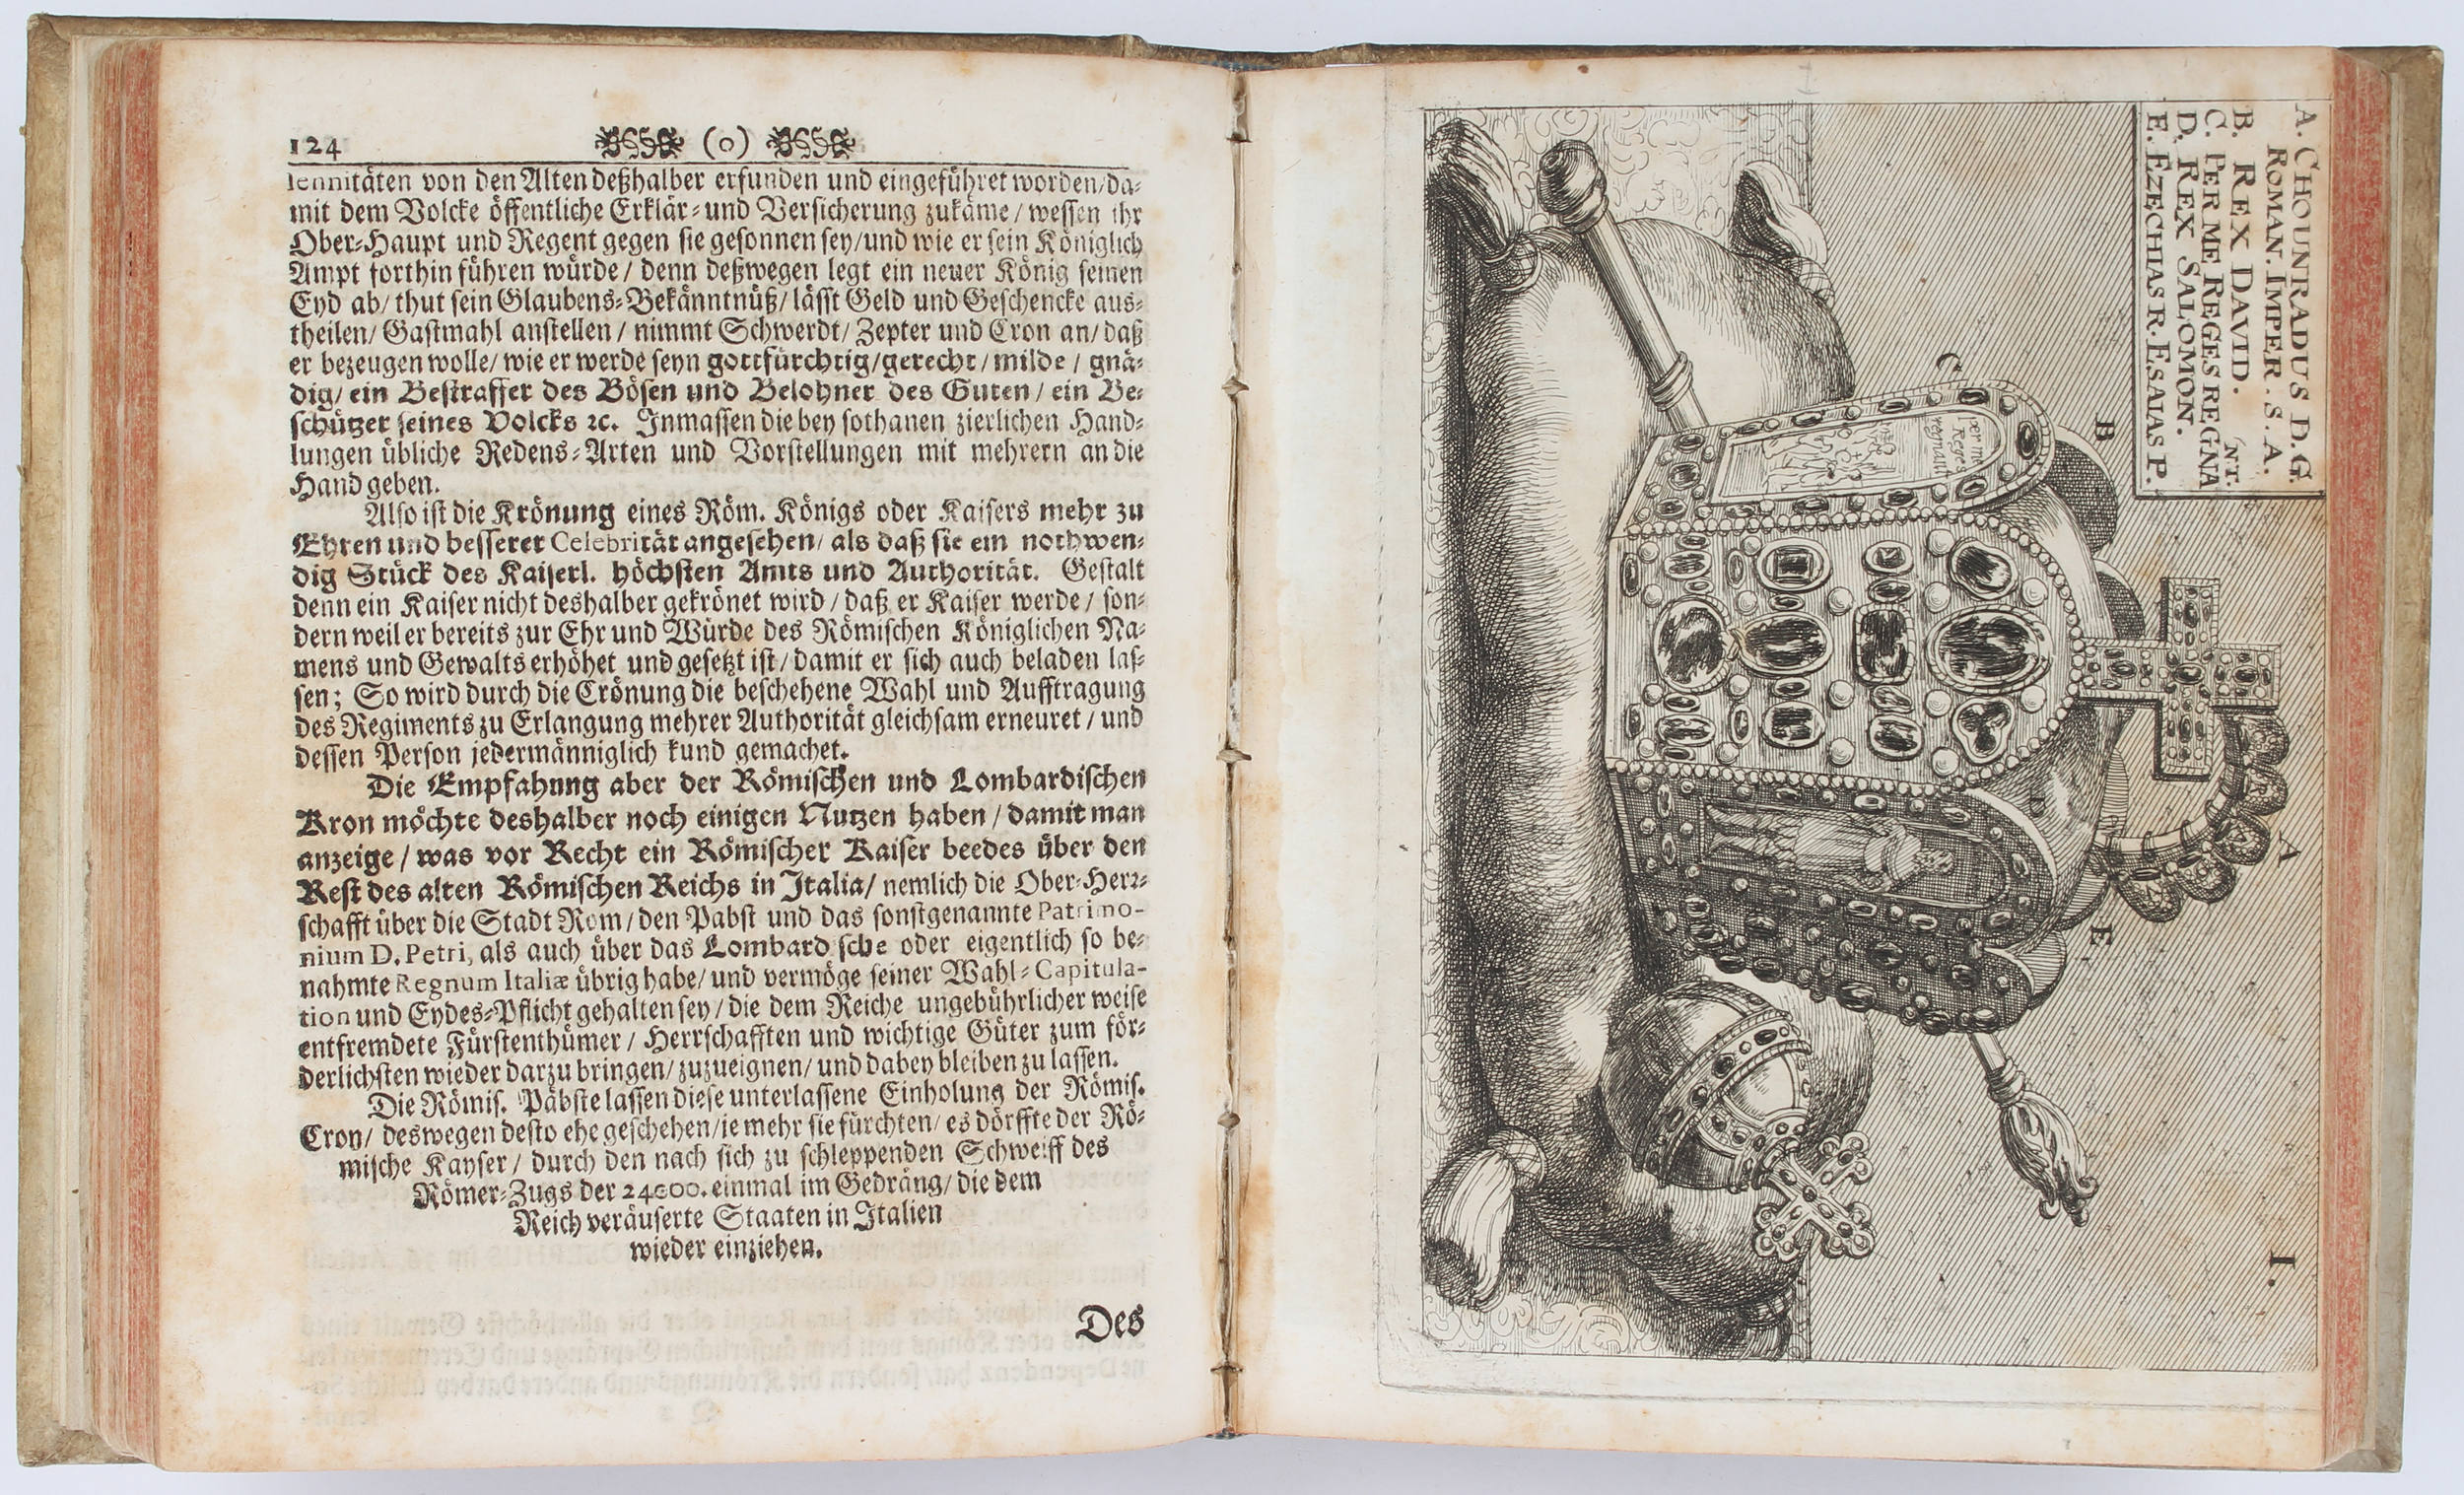 124 (o)
lennitäten von den Alten deßhalber erfunden und eingeführet worden/da-
mit dem Volcke öffentliche Erklär- und Versicherung zukäme / wessen ihr
Ober-Haupt und Regent gegen sie gesonnen sey/und wie er sein Königlich
Ampt forthin führen würde / denn deßwegen legt ein neuer König seinen
Eyd ab/ thut sein Glaubens-Bekänntnüß/ lässt Geld und Geschencke aus-
theilen/ Gastmahl anstellen / nimmt Schwerdt/ Zepter und Cron an/ daß
er bezeugen wolle/ wie er werde seyn gottfürchtig/gerecht / milde / gnä-
dig/ ein Bestraffer des Bösen und Belohner des Guten / ein Be-
schützer seines Volcks ꝛc. Inmassen die bey sothanen zierlichen Hand-
lungen übliche Redens-Arten und Vorstellungen mit mehrern an die
Hand geben.
Also ist die Krönung eines Röm. Königs oder Kaisers mehr zu
Ehren und besserer Celebrität angesehen/ als daß sie ein nothwen-
dig Stück des Kaiserl. höchsten Amts und Authorität. Gestalt
denn ein Kaiser nicht deshalber gekrönet wird / daß er Kaiser werde / son-
dern weil er bereits zur Ehr und Würde des Römischen Königlichen Na-
mens und Gewalts erhöhet und gesetzt ist / damit er sich auch beladen las-
sen; So wird durch die Crönung die beschehene Wahl und Aufftragung
des Regiments zu Erlangung mehrer Authorität gleichsam erneuret / und
dessen Person jedermänniglich kund gemachet.
Die Empfahung aber der Römischen und Lombardischen
Kron möchte deshalber noch einigen Nutzen haben / damit man
anzeige / was vor Recht ein Römischer Kaiser beedes über den
Rest des alten Römischen Reichs in Italia/ nemlich die Ober-Herr-
schafft über die Stadt Rom / den Pabst und das sonstgenannte Patrimo-
nium D. Petri, als auch über das Lombardische oder eigentlich so be-
nahmte Regnum Italiæ übrig habe/ und vermöge seiner Wahl-Capitula-
tion und Eydes-Pflicht gehalten sey / die dem Reiche ungebührlicher weise
entfremdete Fürstenthümer / Herrschafften und wichtige Güter zum för-
derlichsten wieder darzu bringen/ zuzueignen/ und dabey bleiben zu lassen.
Die Römis. Päbste lassen diese unterlassene Einholung der Römis.
Cron/ deswegen desto ehe geschehen/ie mehr sie fürchten/ es dörffte der Rö-
mische Kayser / durch den nach sich zu schleppenden Schweiff des
Römer-Zugs der 24000. einmal im Gedräng/ die dem
Reich veräuserte Staaten in Italien
wieder einziehen.
Des
A. CHOUNRADUS D.G.
ROMAN. IMPER. S. A.
B. REX DAVID.
C. PER ME REGES REGNANT.
D. REX SALOMON.
E. EZECHIAS R. ESAIAS P.
I.
A
B
C
E
per me
Reges
regnant